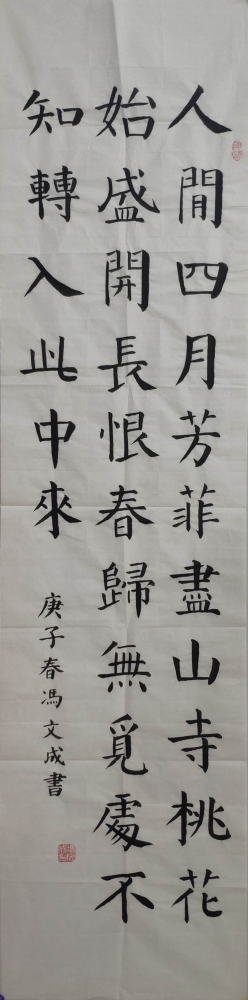 人間四月芳菲盡山寺桃花
始盛開長恨春歸無覓處不
知轉入此中來
庚子春馮文成書